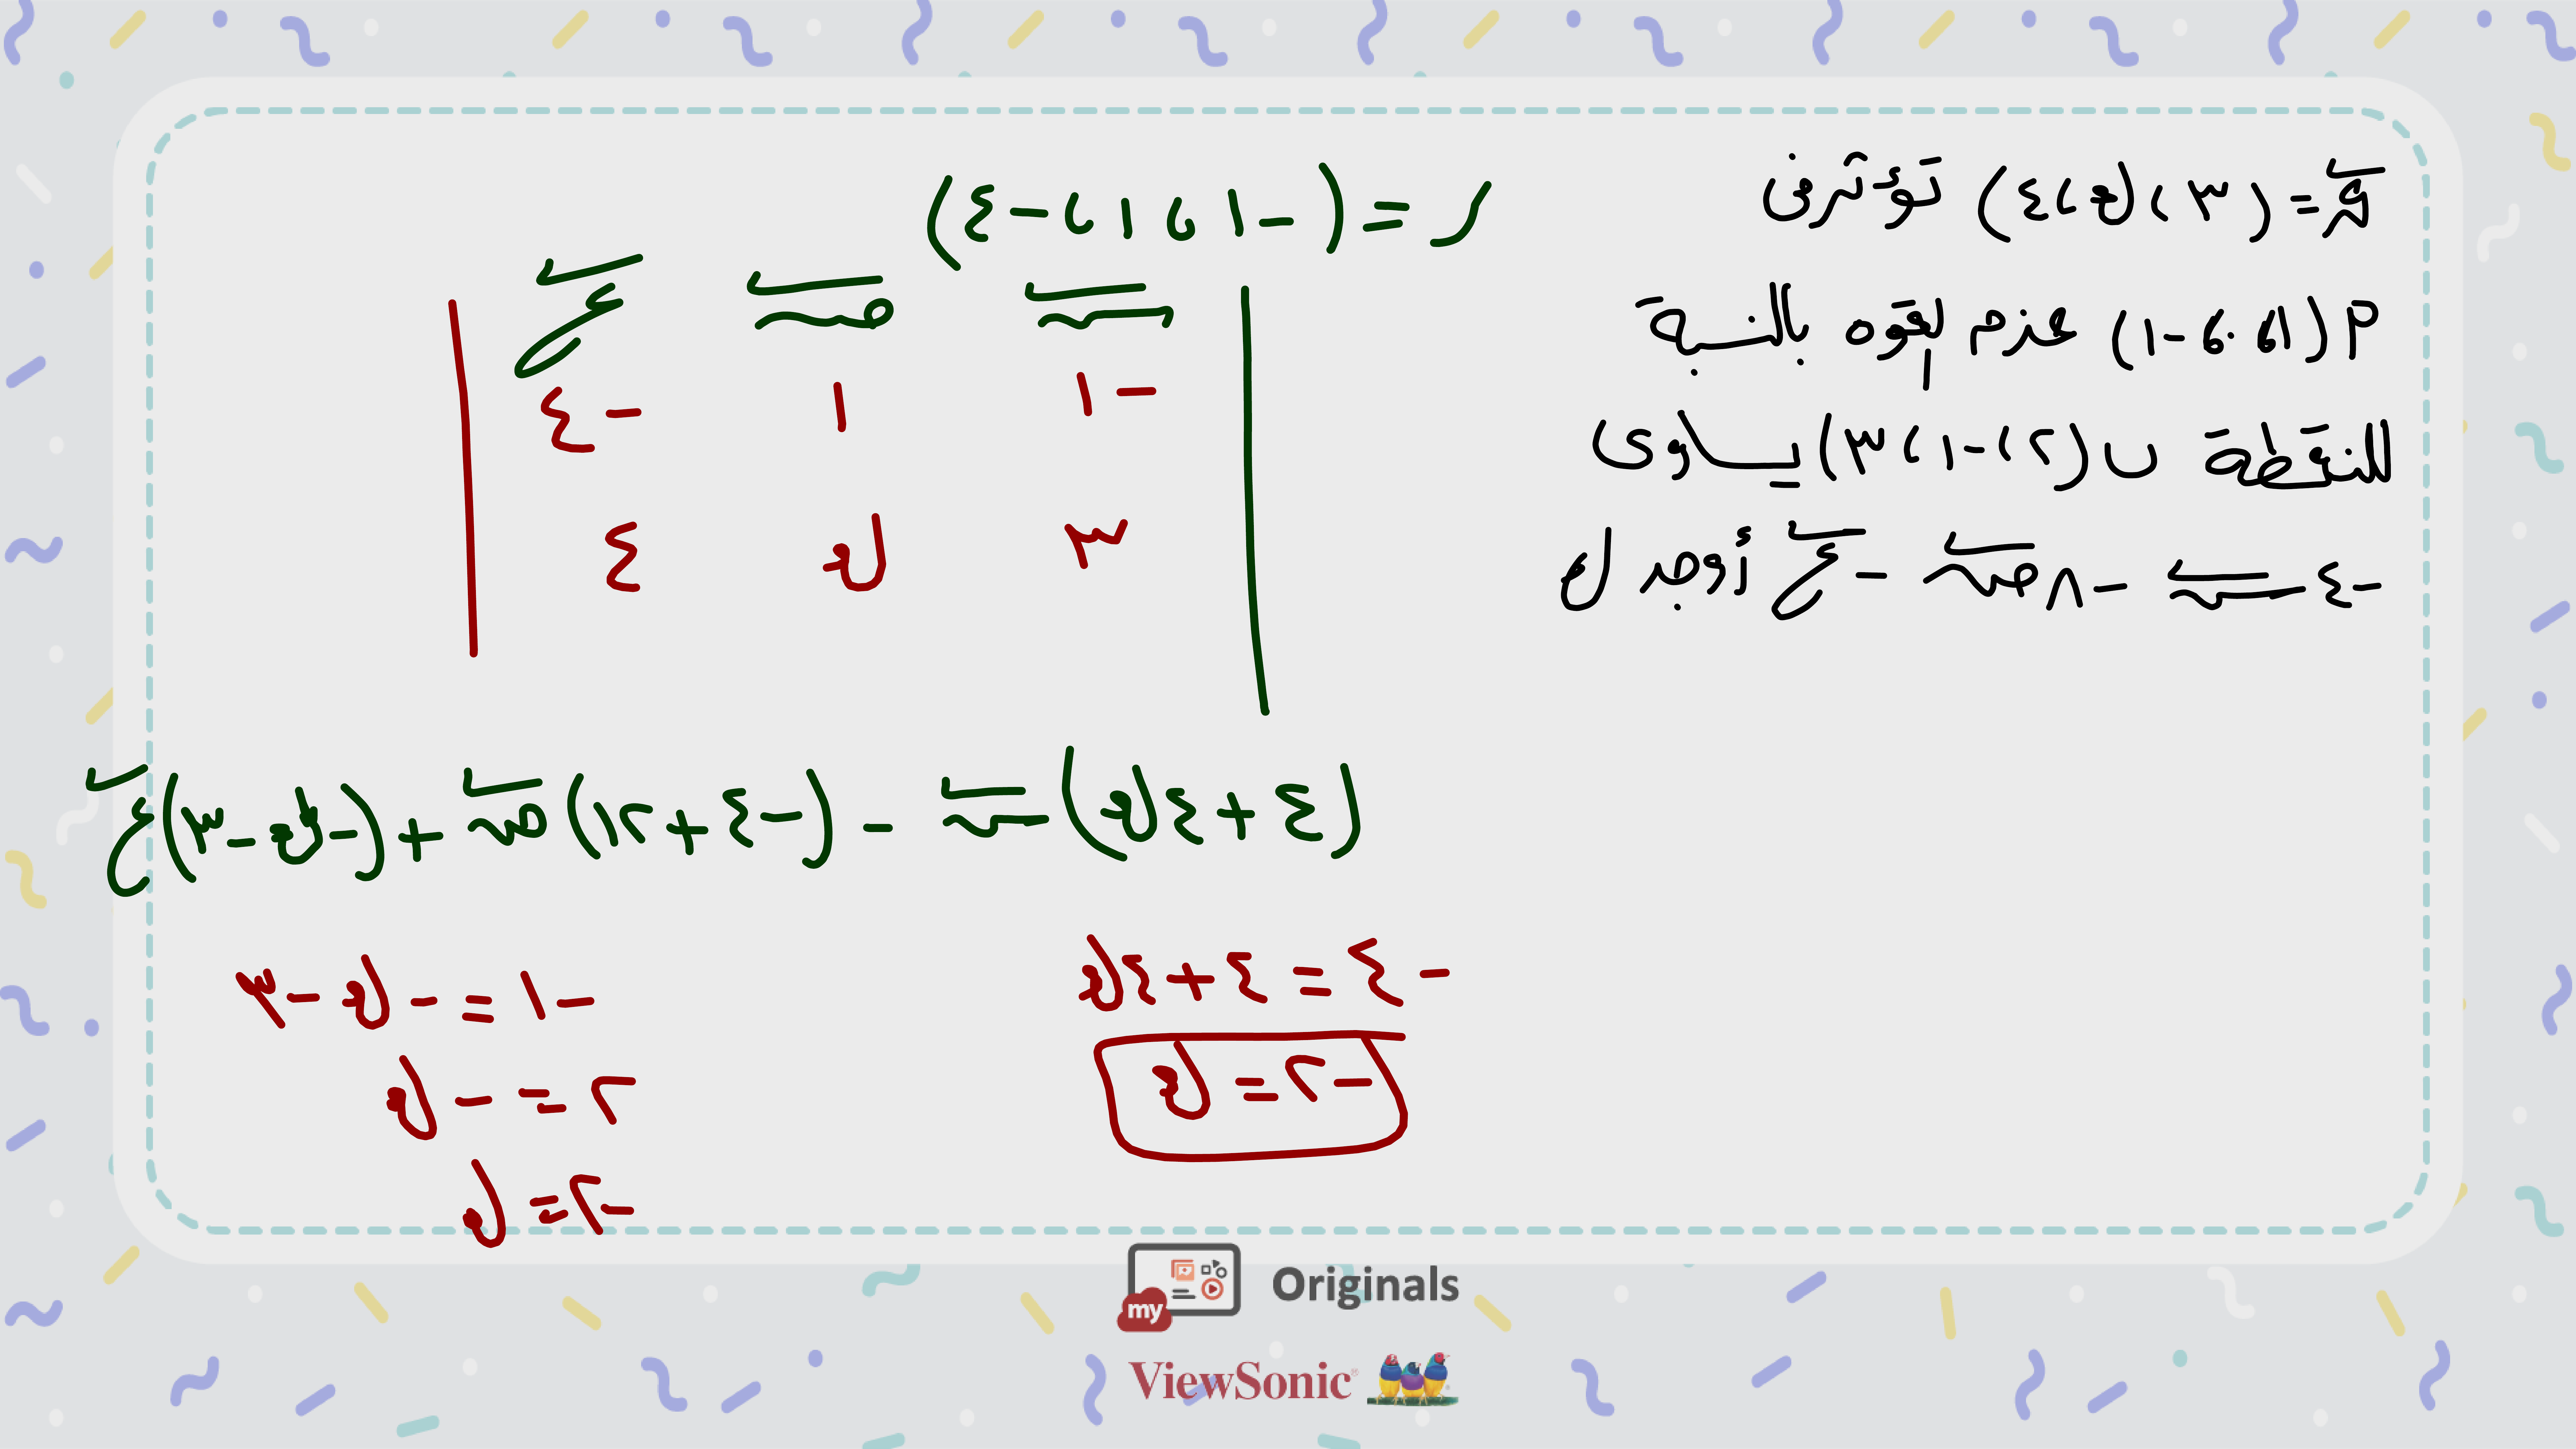 ق = (٣ ، ك ، ٤) تؤثر فى
م (١ ، ٠ ، -١) عزم القوه بالنسبة
للنقطة ب (٢ ، -١ ، ٣) يساوى
-٤ س - ٨ ص - ع أوجد ك
ر = (-١ ، ١ ، -٤)
س ص ع
-١ ١ -٤
٣ ك ٤
(٤ + ٤ك) س - (-٤ + ١٢) ص + (-ك - ٣) ع
-٤ = ٤ + ٤ك
-٢ = ك
-١ = -ك - ٣
٢ = -ك
-٢ = ك
my Originals
ViewSonic